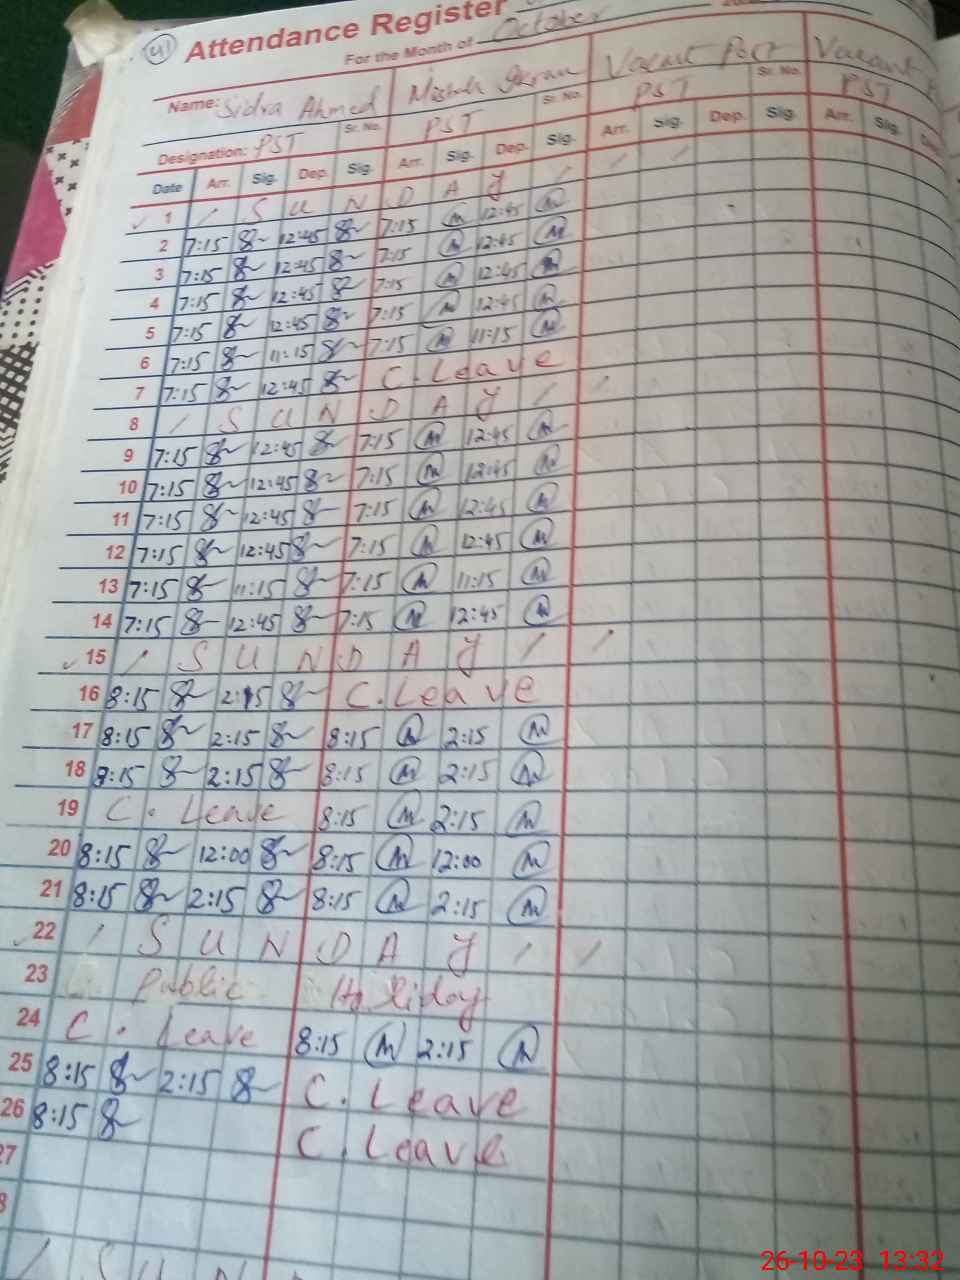 41
Attendance Register
For the Month of October
Name: Sidra Ahmed Misbah Ikram Vacant Post Vacant
Sr. No. Sr. No. Sr. No.
Designation: PST PST PST PST
Date Arr. Sig. Dep. Sig. Arr. Sig. Dep. Sig. Arr. Sig. Dep. Sig. Arr. Sig. Dep.
1 / S U N D A Y / / /
2 7:15 12:45 7:15 12:45
3 7:15 12:45 7:15 12:45
4 7:15 12:45 7:15 12:45
5 7:15 12:45 7:15 12:45
6 7:15 11:15 7:15 11:15
7 7:15 12:45 C. Leave
8 / S U N D A Y / /
9 7:15 12:45 7:15 12:45
10 7:15 12:45 7:15 12:45
11 7:15 12:45 7:15 12:45
12 7:15 12:45 7:15 12:45
13 7:15 11:15 7:15 11:15
14 7:15 12:45 7:15 12:45
15 / S U N D A Y / /
16 8:15 2:15 C. Leave
17 8:15 2:15 8:15 2:15
18 8:15 2:15 8:15 2:15
19 C. Leave 8:15 2:15
20 8:15 12:00 8:15 12:00
21 8:15 2:15 8:15 2:15
22 / S U N D A Y / /
23 Public Holiday
24 C. Leave 8:15 2:15
25 8:15 2:15 C. Leave
26 8:15 C. Leave
27
8
/ S U N
26-10-23 13:32